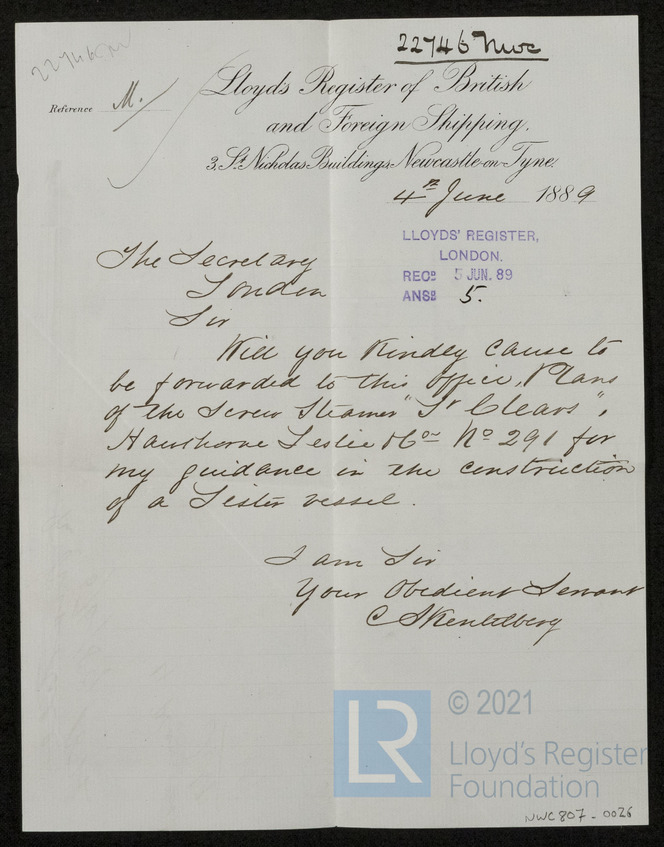 22746 Nwc
22746 NW
Reference M.
Lloyds Register of British
and Foreign Shipping.
3, St Nicholas Buildings Newcastle-on-Tyne.
4th June 1889
LLOYDS' REGISTER,
LONDON.
RECD 5 JUN. 89
ANSD 5.
The Secretary
London
Sir
Will you Kindly cause to
be forwarded to this office, Plans
of the Screw Steamer "St Clears",
Hawthorne Leslie & Cos No 291 for
my guidance in the construction
of a Sister vessel.
I am Sir
Your Obedient Servant
C
LR
© 2021
Lloyd's Register
Foundation
NWC807-0026